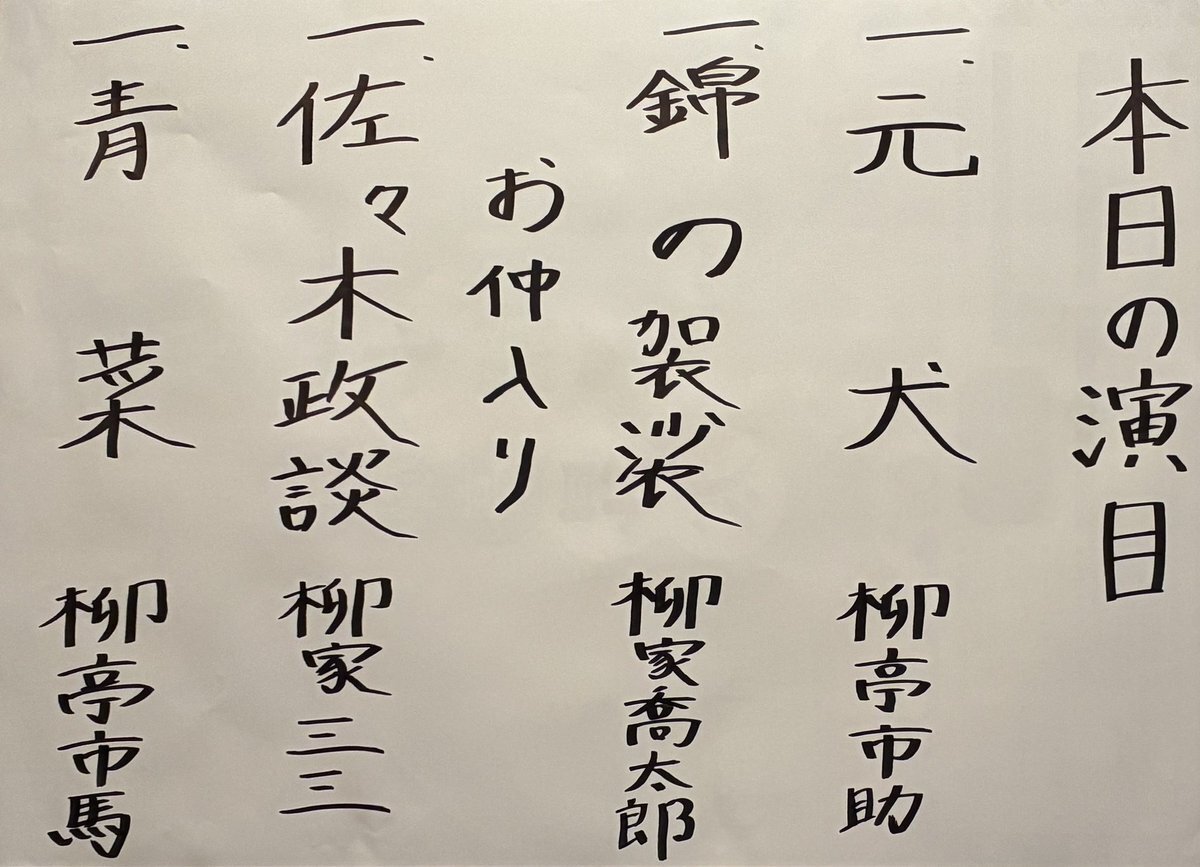 本日の演目
一、元犬 柳亭市助
一、錦の袈裟 柳家喬太郎
お仲入り
一、佐々木政談 柳家三三
一、青菜 柳亭市馬